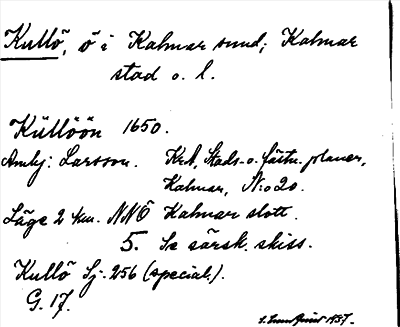 Kullö, ö i Kalmar sund; Kalmar
stad o. l.
Küllöön 1650.
Amhj: Larsson. KrA, Stads- o. fästn. planer,
Kalmar, N:o 20.
Läge 2 km. NNÖ Kalmar slott.
5. Se särsk. skiss.
Kullö Sj. 256 (special.).
G. 17.
1957.